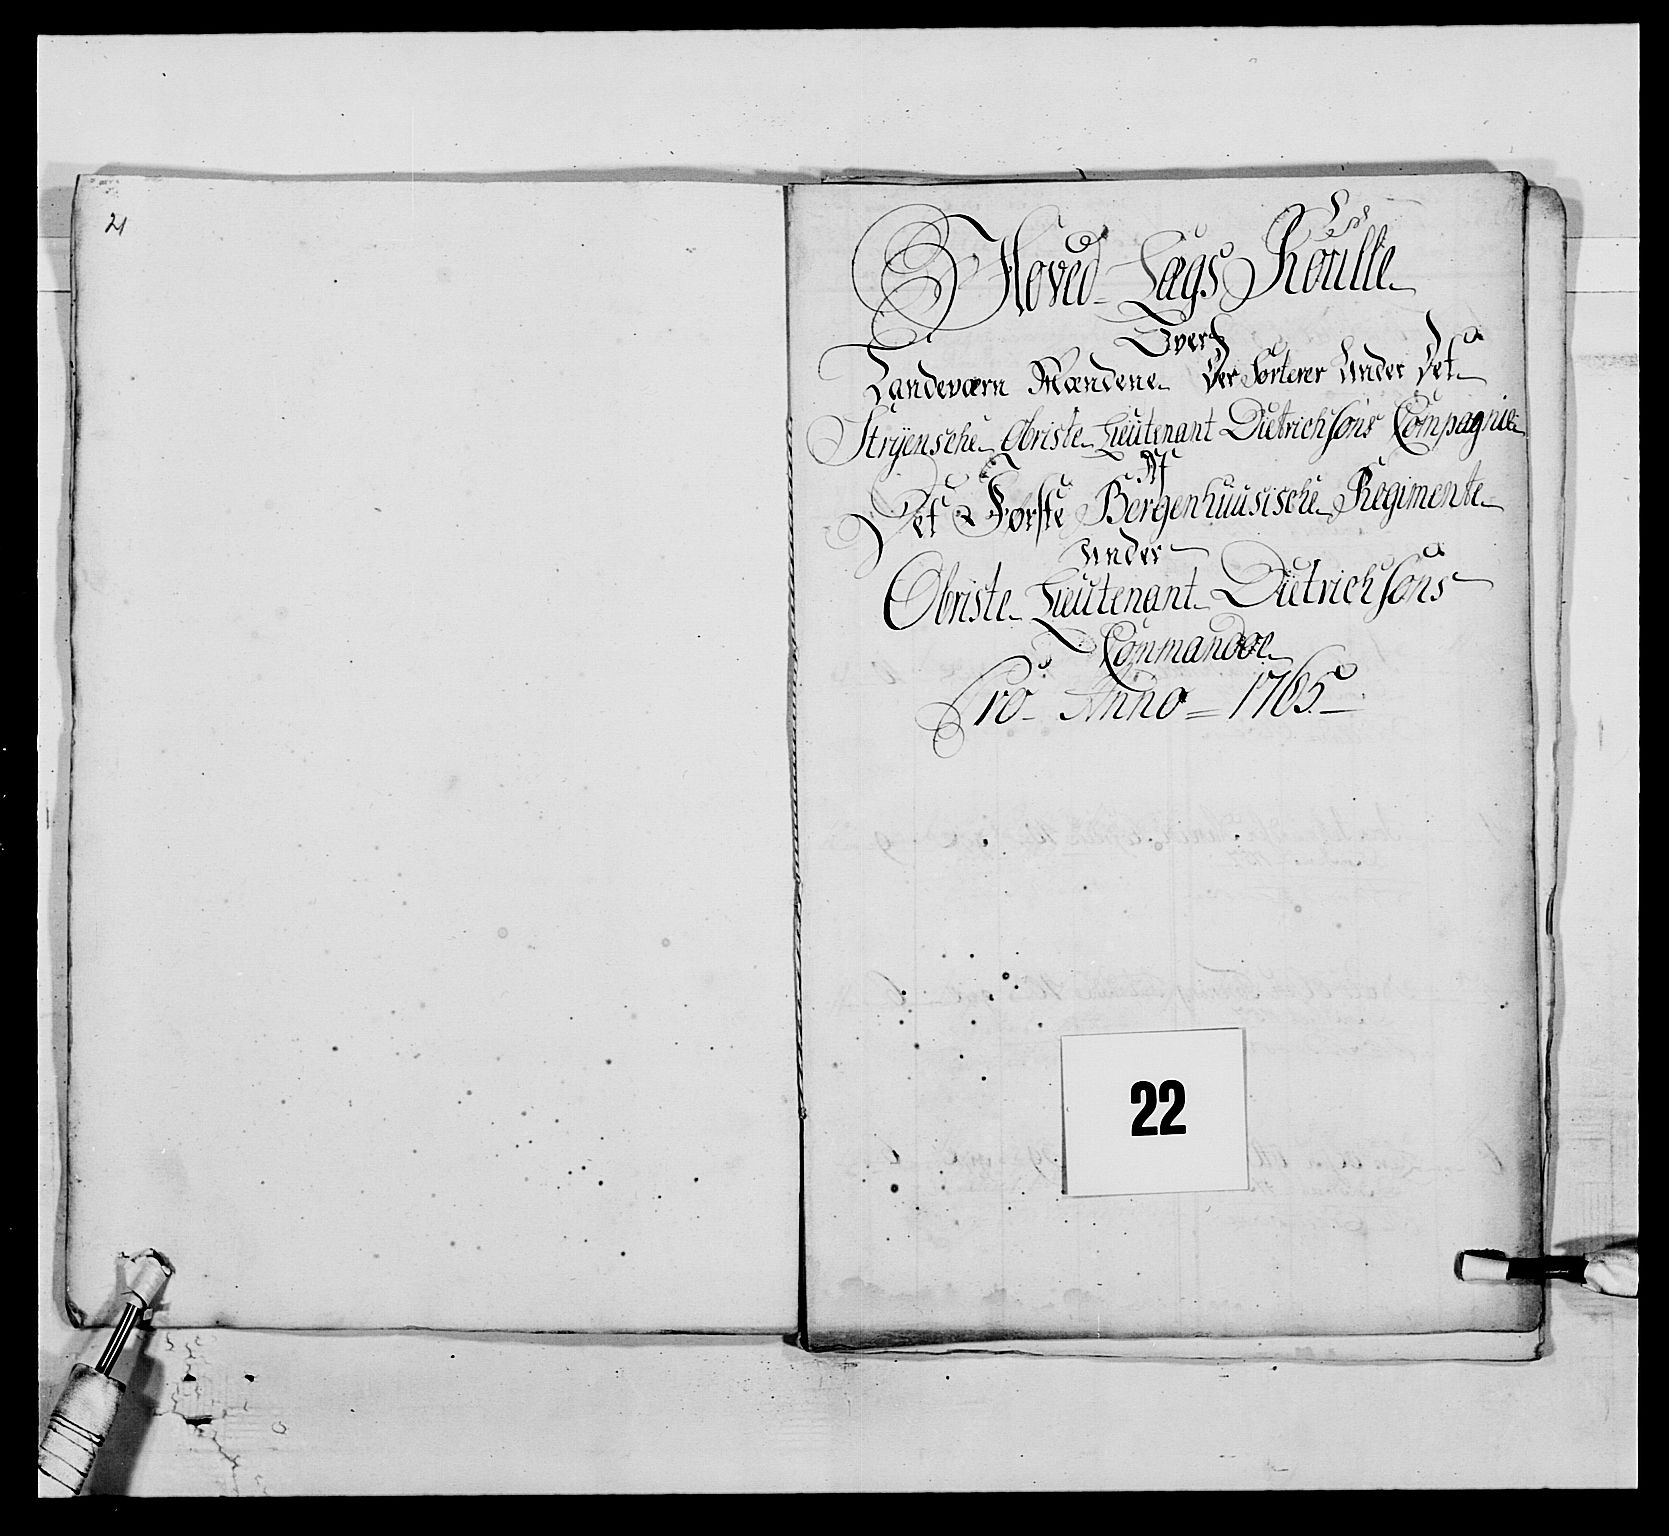 21
Hoved Lægs Roulle
Over
Landeværn Mændene Der Sorterer Under Det
Stryensche Obriste Lieutenant Dietrichsons Compagnie
Af
Det Første Bergenhuusische Regimente
Under
Obriste Lieutenant Dietrichsons
Commandoe
Pro Anno = 1765
22